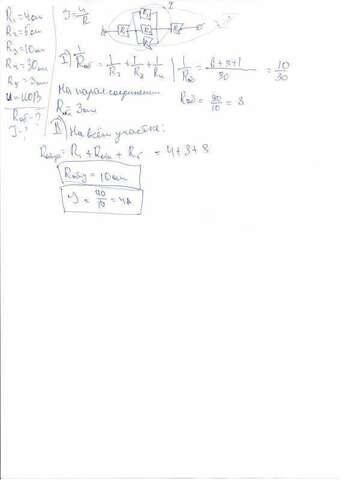 R₁=4ом
R₂=5ом
R₃=10ом
R₄=30ом
R₅=3ом
U=40В
Rоб-?
J-?
J=U/R
I) 1/Rоб = 1/R₂ + 1/R₃ + 1/R₄ | 1/Rоб = 6+3+1/30 = 10/30
На паралл соединении
Rоб = 30/10 = 3
Rоб= 3ом
II) На всём участке:
Rобщ= R₁ + Rоб + R₅ = 4+3+3
Rобщ = 10ом
J = 40/10 = 4А